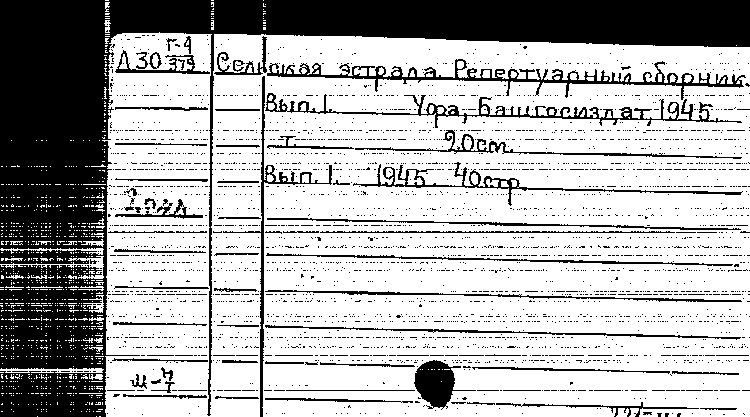 Л 30 Г-4/379 Сельская эстрада. Репертуарный сборник.
Вып. 1. Уфа, Башгосиздат, 1945.
т. 20см.
Вып. 1. 1945. 40стр.